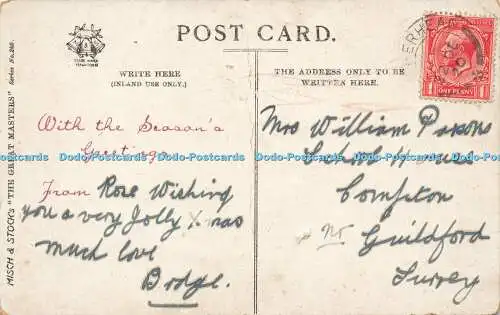 POST CARD.
TRADE MARK
WRITE HERE
(INLAND USE ONLY.)
THE ADDRESS ONLY TO BE
WRITTEN HERE.
MISCH & STOCK'S "THE GREAT MASTERS" Series No. 268.
ONE PENNY
With the Season's
Greetings
From Rose Wishing
you a very Jolly Xmas
much love
Bodge.
Mrs William
School House
Compton
Nr Guildford
Surrey
Dodo-Postcards Dodo-Postcards Dodo-Postcards Dodo-Postcards Dodo-Postcards